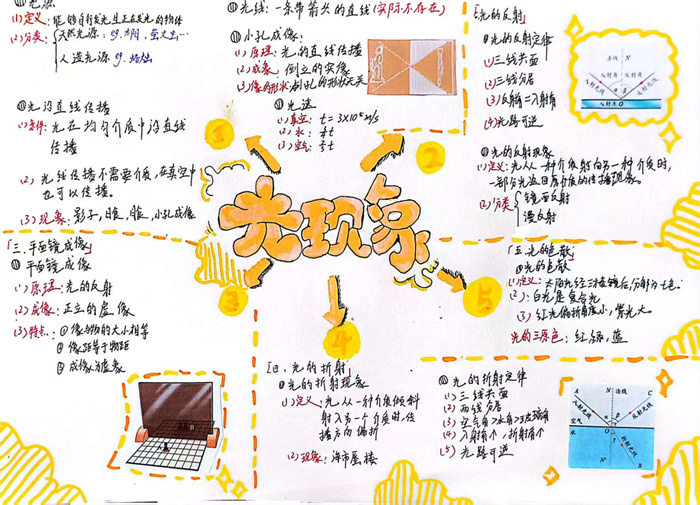 光源
(1)定义：能够自行发光且正在发光的物体
(2)分类：天然光源：
人造光源
光沿直线传播
(1)条件：光在均匀介质中沿直线
传播
(2) 光线传播不需要介质，在真空中
也可以传播。
(3)现象：影子，日食，月食，小孔成像
光线：一条带箭头的直线(实际不存在)
小孔成像：
(1)原理：光的直线传播
(2)成象：倒立的实像
(3)像的形状：倒孔的形状无关
光速
(1)真空：
(2)水：
(3)空气：
光的反射
光的反射定律
(1)三线共面
(2)三线分居
(3)反射角=入射角
(4)光路可逆
法线 N
入射角 反射角
入射光线
反射光线
入射点 O
光的反射现象
(1)定义：光从一种介质射向另一种介质时，
一部分光返回原介质的传播现象。
(2)分类 镜面反射
漫反射
1
2
3
4
5
光现象
「三、平面镜成像」
平面镜成像
(1)原理：光的反射
(2)成像：正立的虚像
(3)特点：①像与物的大小相等
②像距等于物距
③成像为虚象
「四、光的折射」
光的折射现象
(1)定义：光从一种介质倾斜
射入另一个介质时，传
播方向偏折
(2)现象：海市蜃楼
光的折射定律
(1)三线共面
(2)两线分居
(3)空气角>水角>
(4)入射角个，折射角个
(5)光路可逆
A N 法线 C
入射光线
反射光线
空气
水
O
折射光线
N' B
「五、光的色散」
光的色散
(1)定义：太阳光经三棱镜后，分解为七色。
(2)：白光是复合光
(3)：红光偏折角度小，紫光大。
光的三原色：红，绿，蓝